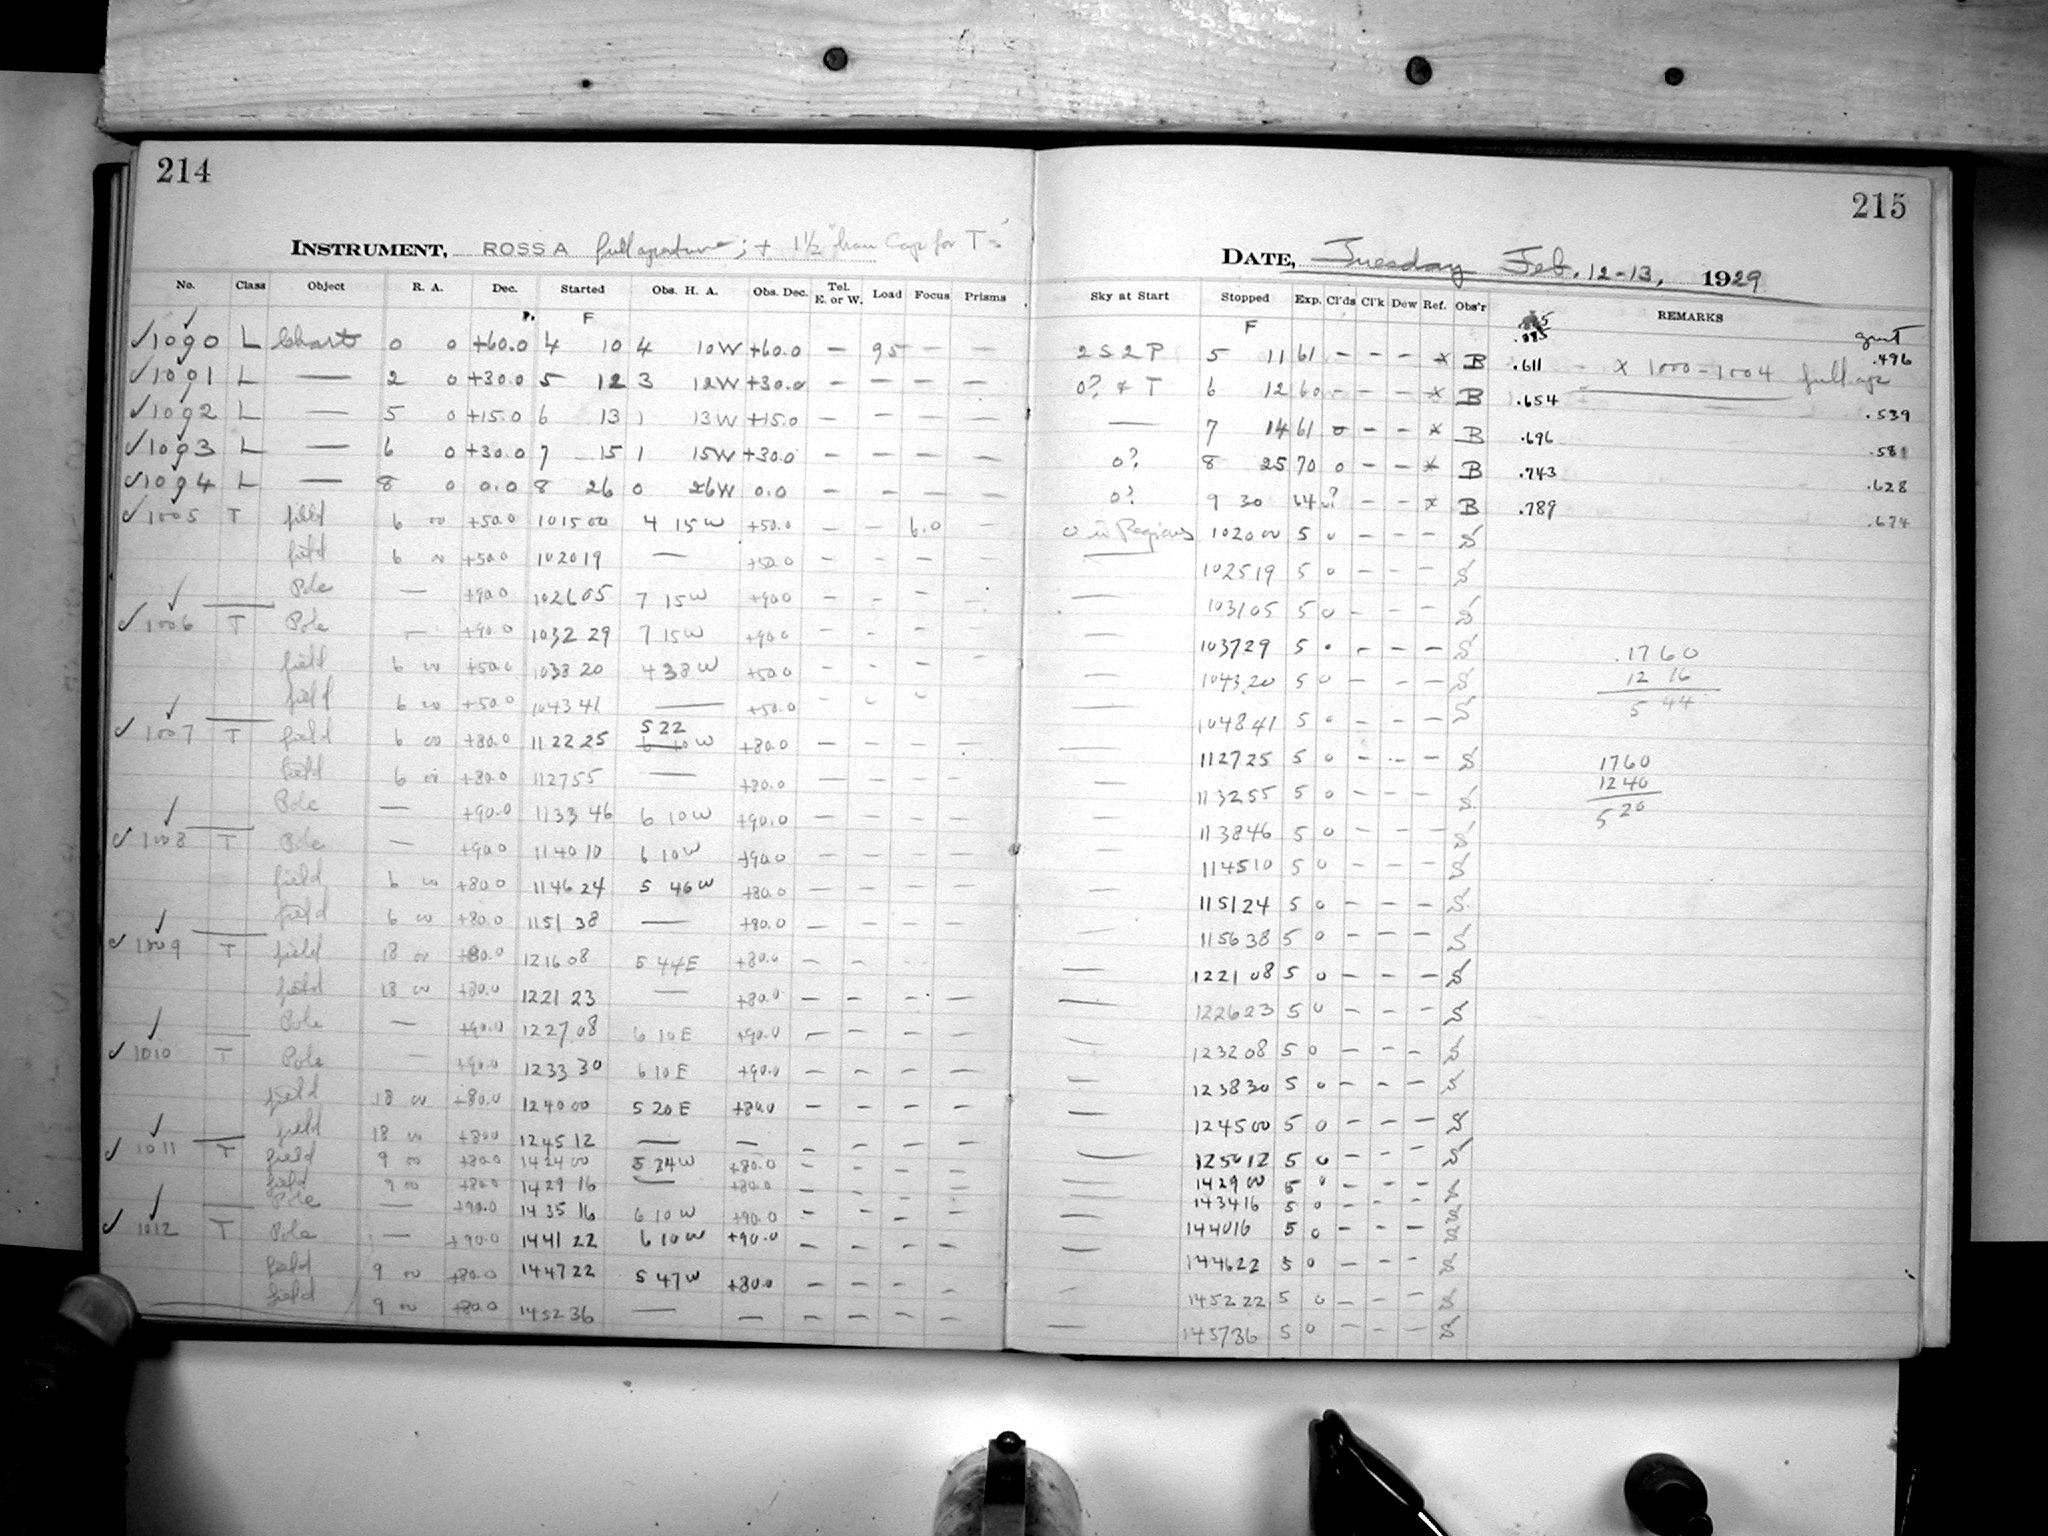 214
INSTRUMENT, ROSS A full aperture; + 1½" Cap for T's
No. Class Object R. A. Dec. Started Obs. H. A. Obs. Dec. Tel. E. or W. Load Focus Prisms
F
✓1000 L Chart 0 0 +60.0 4 10 4 10W +60.0 — 95 — —
✓1001 L — 2 0 +30.0 5 12 3 12W +30.0 — — — —
✓1002 L — 5 0 +15.0 6 13 1 13W +15.0 — — — —
✓1003 L — 6 0 +30.0 7 15 1 15W +30.0 — — — —
✓1004 L — 8 0 0.0 8 26 0 26W 0.0 — — — —
✓1005 T field 6 00 +50.0 10 15 00 4 15W +50.0 — — 6.0 —
field 6 00 +50.0 10 20 19 — +50.0
Pole — +90.0 10 26 05 7 15W +90.0 — — — —
✓1006 T Pole — +90.0 10 32 29 7 15W +90.0 — — — —
field 6 00 +50.0 10 38 20 4 38W +50.0 — — — —
field 6 00 +50.0 10 43 41 — +50.0
✓1007 T field 6 00 +80.0 11 22 25 5 22 W +80.0 — — — —
field 6 00 +80.0 11 27 55 — +80.0 — — — —
Pole — +90.0 11 33 46 6 10W +90.0 — — — —
✓1008 T Pole — +90.0 11 40 10 6 10W +90.0 — — — —
field 6 00 +80.0 11 46 24 5 46W +80.0 — — — —
field 6 00 +80.0 11 51 38 — +80.0 — — — —
✓1009 T field 18 00 +80.0 12 16 08 5 44E +80.0 — —
field 18 00 +80.0 12 21 23 — +80.0 — — — —
Pole — +90.0 12 27 08 6 10E +90.0 — — — —
✓1010 T Pole — +90.0 12 33 30 6 10E +90.0 — — — —
field 18 00 +80.0 12 40 00 5 20E +80.0 — — — —
field 18 00 +80.0 12 45 12 — — — — — —
✓1011 T field 9 00 +80.0 14 24 00 5 24W +80.0 — — — —
field 9 00 +80.0 14 29 16 — +80.0 — — — —
Pole — +90.0 14 35 16 6 10W +90.0 — — — —
✓1012 T Pole — +90.0 14 41 22 6 10W +90.0 — — — —
field 9 00 +80.0 14 47 22 5 47W +80.0 — — — —
field 9 00 +80.0 14 52 36 — — — — — —
215
DATE, Tuesday Feb. 12-13, 1929
Sky at Start Stopped Exp. Cl'ds Cl'k Dew Ref. Obs'r REMARKS
F gmt
2 S 2 P 5 11 61 — — — x B .611 x 1000-1004 full ap .496
0? & T 6 12 60 — — — x B .654 .539
— 7 14 61 0 — — x B .696 .581
0? 8 25 70 0 — — x B .743 .628
0? 9 30 64 0? — — x B .789 .674
0 in Regions 10 20 00 5 0 — — — S
— 10 25 19 5 0 — — — S
— 10 31 05 5 0 — — — S
— 10 37 29 5 0 — — — S .1760
— 10 43 20 5 0 — — — S 12 16
— 10 48 41 5 0 — — — S 5 44
11 27 25 5 0 — — — S 1760
— 11 32 55 5 0 — — — S 1240
— 11 38 46 5 0 — — — S 520
— 11 45 10 5 0 — — — S
— 11 51 24 5 0 — — — S
— 11 56 38 5 0 — — — S
— 12 21 08 5 0 — — — S
— 12 26 23 5 0 — — — S
— 12 32 08 5 0 — — — S
— 12 38 30 5 0 — — — S
— 12 45 00 5 0 — — — S
— 12 50 12 5 0 — — — S
— 14 29 00 5 0 — — — S
— 14 34 16 5 0 — — — S
— 14 40 16 5 0 — — — S
— 14 46 22 5 0 — — — S
— 14 52 22 5 0 — — — S
— 14 57 36 5 0 — — — S